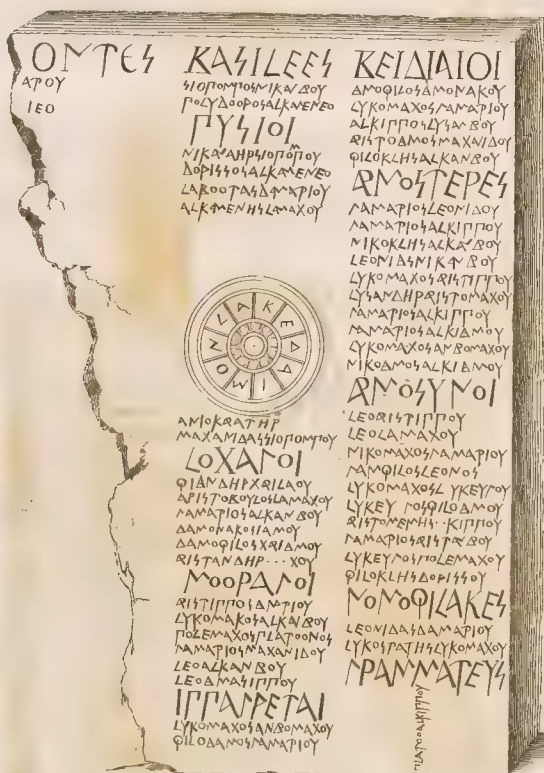 ΟΝΤΕΣ
ΑΡΟΥ
ΙΕΟ
ΒΑΣΙΛΕΕΣ
ΣΙΟΠΟΜΠΟΣΝΙΚΑΝΒΟΥ
ΠΟΛΥΔΟΟΡΟΣΑΛΚΑΜΕΝΕΟ
ΠΥΣΙΟΙ
ΝΙΚΑΝΔΗΡΣΙΟΠΟΜΠΟΥ
ΔΟΡΙΣΣΟΣΑΛΚΑΜΕΝΕΟ
ΛΑΒΟΟΤΑΣΔΑΜΑΡΙΟΥ
ΑΛΚΑΜΕΝΗΣΛΑΜΑΧΟΥ
ΛΑΚΕΔΑΙΜΟΝ
ΜΑΧΑΝΙΔΑΣΣΙΟΠΟΜΠΟΥ
ΛΟΧΑΓΟΙ
ΑΡΙΣΤΟΒΟΥΛΟΣΛΑΜΑΧΟΥ
ΔΑΜΑΡΙΟΣΑΛΚΑΝΒΟΥ
ΔΑΜΟΝΑΚΟΣΔΑΜΟΥ
ΔΑΜΟΦΙΛΟΣΧΑΡΙΔΑΜΟΥ
ΑΡΙΣΤΑΝΔΗΡ···ΧΟΥ
ΜΟΟΡΑΓΟΙ
ΑΡΙΣΤΙΠΠΟΣΔΑΜΑΡΙΟΥ
ΛΥΚΟΜΑΚΟΣΑΛΚΑΝΒΟΥ
ΠΟΛΕΜΑΧΟΣΠΛΑΤΟΟΝΟΣ
ΔΑΜΑΡΙΟΣΜΑΧΑΝΙΔΟΥ
ΛΕΟΑΛΚΑΝΒΟΥ
ΙΠΠΑΓΡΕΤΑΙ
ΛΥΚΟΜΑΧΟΣΑΝΒΟΜΑΧΟΥ
ΦΙΛΟΔΑΜΟΣΔΑΜΑΡΙΟΥ
ΒΕΙΔΙΑΙΟΙ
ΔΑΜΟΦΙΛΟΣΔΑΜΟΝΑΚΟΥ
ΛΥΚΟΜΑΧΟΣΔΑΜΑΡΙΟΥ
ΑΛΚΙΠΠΟΣΛΥΣΑΝΒΟΥ
ΑΡΙΣΤΟΔΑΜΟΣΜΑΧΑΝΙΔΟΥ
ΦΙΛΟΚΛΗΣΑΛΚΑΝΒΟΥ
ΑΡΜΟΣΤΕΡΕΣ
ΔΑΜΑΡΙΟΣΛΕΟΝΙΔΟΥ
ΔΑΜΑΡΙΟΣΑΛΚΙΠΠΟΥ
ΝΙΚΟΚΛΗΣΑΛΚΑΝΒΟΥ
ΛΕΟΝΙΔΑΣΝΙΚΑΝΒΟΥ
ΛΥΚΟΜΑΧΟΣΑΡΙΣΤΙΠΠΟΥ
ΛΥΣΑΝΔΗΡΑΡΙΣΤΟΜΑΧΟΥ
ΔΑΜΑΡΙΟΣΑΛΚΙΠΠΟΥ
ΔΑΜΑΡΙΟΣΑΛΚΙΔΑΜΟΥ
ΛΥΚΟΜΑΧΟΣΑΝΒΟΜΑΧΟΥ
ΝΙΚΟΔΑΜΟΣΑΛΚΙΔΑΜΟΥ
ΑΡΜΟΣΥΝΟΙ
ΛΕΟΑΡΙΣΤΙΠΠΟΥ
ΛΕΟΛΑΜΑΧΟΥ
ΝΙΚΟΜΑΧΟΣΔΑΜΑΡΙΟΥ
ΛΥΚΟΜΑΧΟΣΛΥΚΕΥΓΟΥ
ΛΥΚΕΥΓΟΣΦΙΛΟΔΑΜΟΥ
ΑΡΙΣΤΟΜΕΝΗΣ··ΚΙΠΠΟΥ
ΛΥΚΕΥΓΟΣΠΟΛΕΜΑΧΟΥ
ΦΙΛΟΚΛΗΣΔΟΡΙΣΣΟΥ
ΝΟΜΟΦΙΛΑΚΕΣ
ΛΕΟΝΙΔΑΣΔΑΜΑΡΙΟΥ
ΛΥΚΟΣΡΑΤΗΣΛΥΚΟΜΑΧΟΥ
ΓΡΑΜΜΑΤΕΥΣ